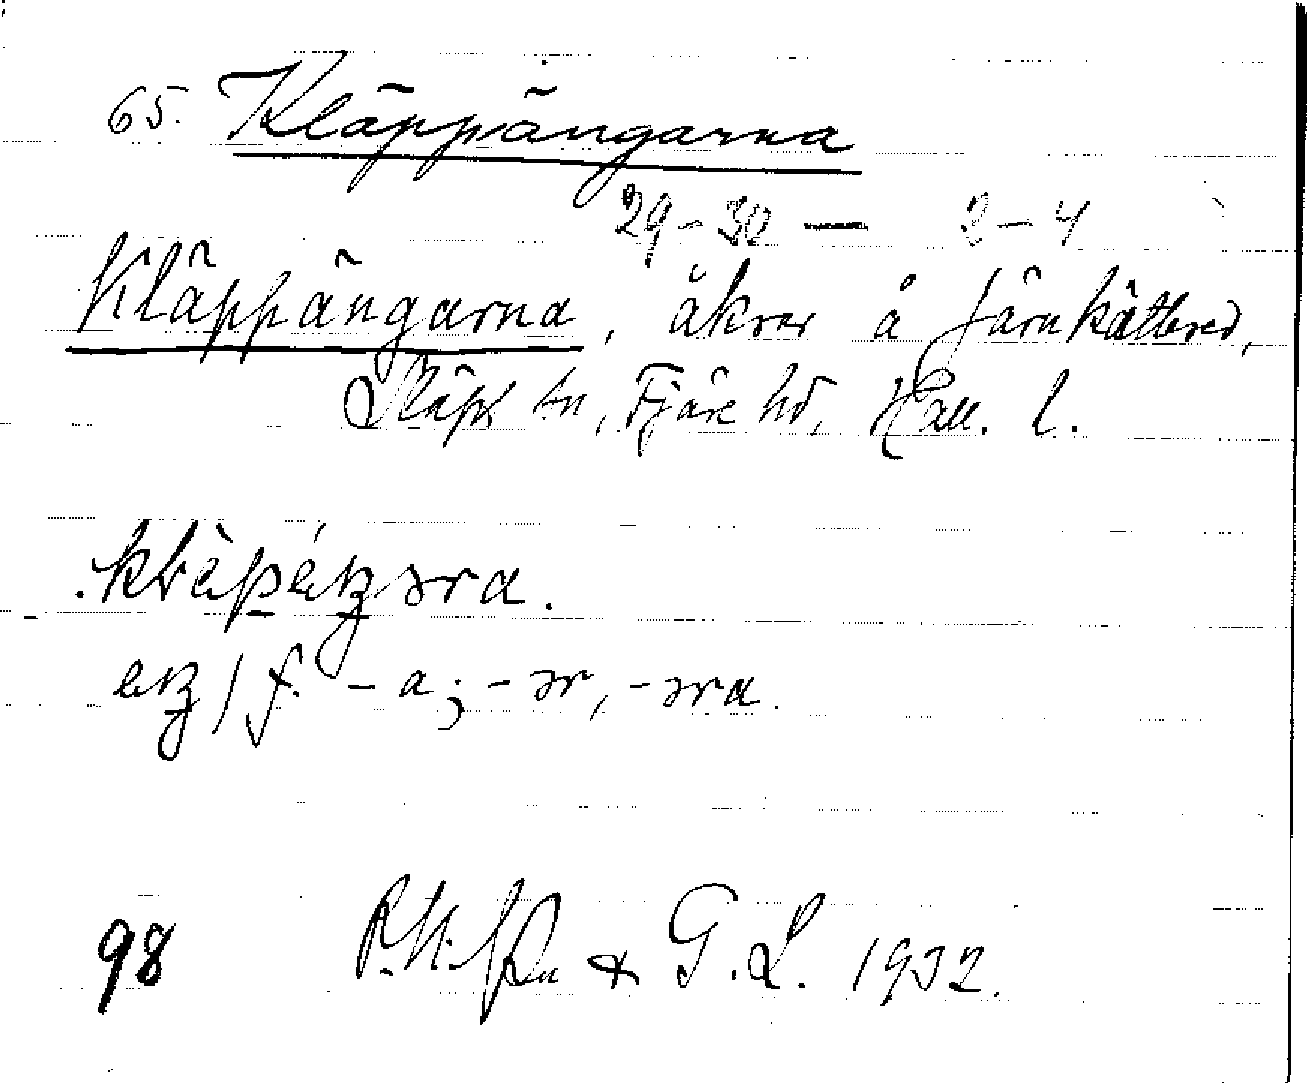 65. Kläppängarna
29-30 — 2-4
Kläppängarna, åkrar å Järnkättered,
Släps sn, Fjäre hd, Hall. l.
f. -a; -ər, -əra.
98 & G. L. 1932.